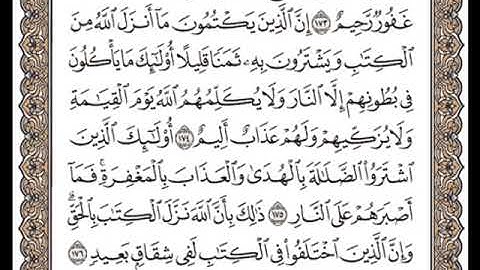 غَفُورٌ رَّحِيمٌ ١٧٣ إِنَّ الَّذِينَ يَكْتُمُونَ مَآ أَنزَلَ اللَّهُ مِنَ
الْكِتَٰبِ وَيَشْتَرُونَ بِهِۦ ثَمَنًا قَلِيلًا أُو۟لَٰٓئِكَ مَا يَأْكُلُونَ
فِى بُطُونِهِمْ إِلَّا النَّارَ وَلَا يُكَلِّمُهُمُ اللَّهُ يَوْمَ الْقِيَٰمَةِ
وَلَا يُزَكِّيهِمْ وَلَهُمْ عَذَابٌ أَلِيمٌ ١٧٤ أُو۟لَٰٓئِكَ الَّذِينَ
اشْتَرَوُا۟ الضَّلَٰلَةَ بِالْهُدَىٰ وَالْعَذَابَ بِالْمَغْفِرَةِ ۚ فَمَآ
أَصْبَرَهُمْ عَلَى النَّارِ ١٧٥ ذَٰلِكَ بِأَنَّ اللَّهَ نَزَّلَ الْكِتَٰبَ بِالْحَقِّ ۗ
وَإِنَّ الَّذِينَ اخْتَلَفُوا۟ فِى الْكِتَٰبِ لَفِى شِقَاقٍۭ بَعِيدٍ ١٧٦